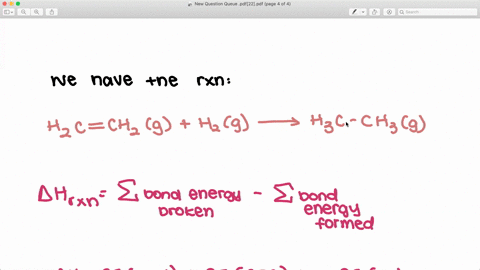 New Question Queue .pdf[22].pdf (page 4 of 4)
we have the rxn:
H₂C=CH₂(g) + H₂(g) ⟶ H₃C-CH₃(g)
ΔHrxn= Σ bond energy broken - Σ bond energy formed